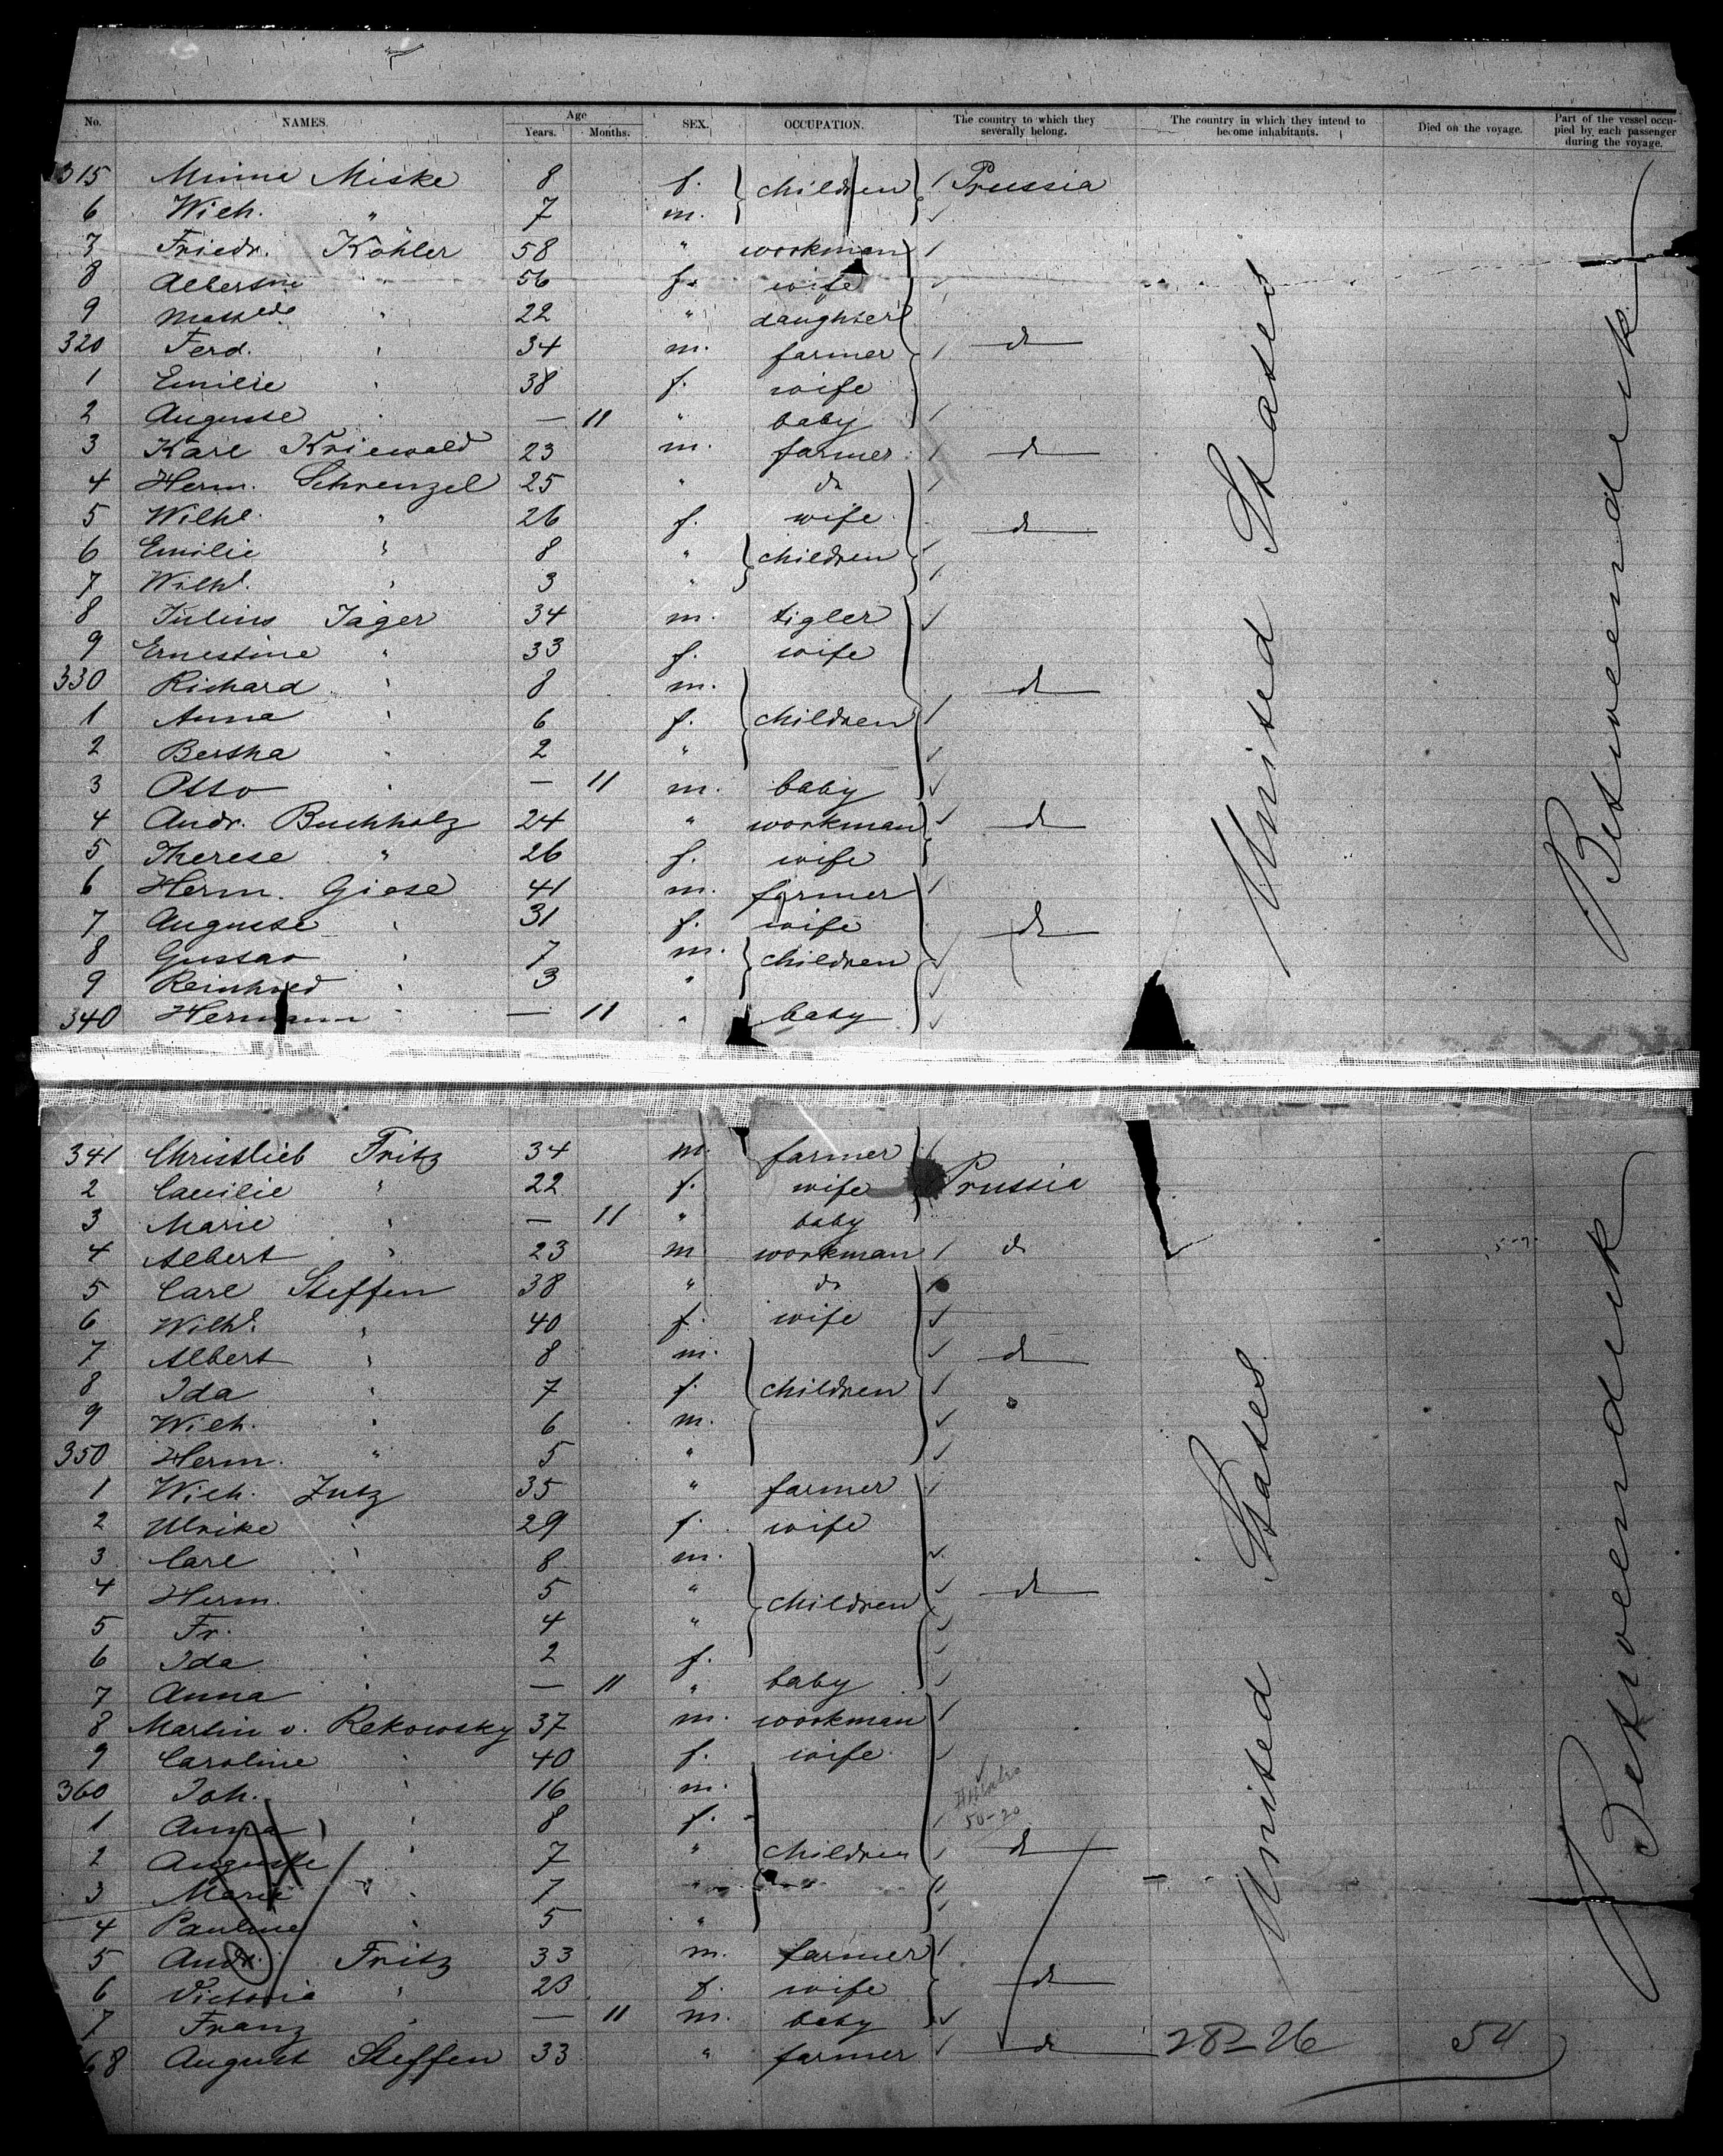 No. NAMES. Age Years. Months. SEX. OCCUPATION. The country to which they severally belong. The country in which they intend to become inhabitants. Died on the voyage. Part of the vessel occupied by each passenger during the voyage.
315 Minna Miske 8 f. children Prussia
6 Wilh. " 7 m.
7 Friedr. Köhler 58 " workman
8 Albertine " 56 f. wife
9 " 22 " daughter
320 Ferd. " 34 m. farmer do
1 Emilie " 38 f. wife
2 Auguste " — 11 " baby
3 Karl Kriewald 23 m. farmer do
4 Herm. Schrenzel 25 " do
5 Wilhe. " 26 f. wife do
6 Emilie " 8 " children
7 Wilhe. " 3 "
8 Julius Jäger 34 m. tigler
9 Ernestine " 33 f. wife
330 Richard " 8 m. do
1 Anna " 6 f. children
2 Bertha " 2 "
3 Otto " — 11 m. baby
4 Andr. Buchholz 24 " workman do
5 Therese " 26 f. wife
6 Herm. Giese 41 m. farmer
7 Auguste " 31 f. wife do
8 Gustav " 7 m. children
9 Reinhard " 3 "
340 Hermann " — 11 " baby
United States
Betweendeck
341 Christlieb Fritz 34 m. farmer
2 Caecilie " 22 f. wife Prussia
3 Marie " — 11 " baby
4 Albert " 23 m workman do
5 Carl Steffen 38 " do
6 Wilhe. " 40 f. wife
7 Albert " 8 m. do
8 Ida " 7 f. children
9 Wilh. " 6 m.
350 Herm. " 5 "
1 Wilh. Zutz 35 " farmer
2 Ulrike " 29 f. wife
3 Carl " 8 m.
4 Herm. " 5 " children do
5 Fr. " 4 "
6 Ida " 2 f.
7 Anna " — 11 " baby
8 Martin v. Rekowsky 37 m. workman
9 Caroline " 40 f. wife
360 Joh. " 16 m.
1 Anna " 8 f.
50-20
2 Auguste " 7 " children do
3 Marie " 7 "
4 Pauline " 5 "
5 Andr. Fritz 33 m. farmer
6 Victoria " 23 f. wife do
7 Franz " — 11 m. baby
68 August Steffen 33 " farmer do 282-26 54
United States
Betweendeck